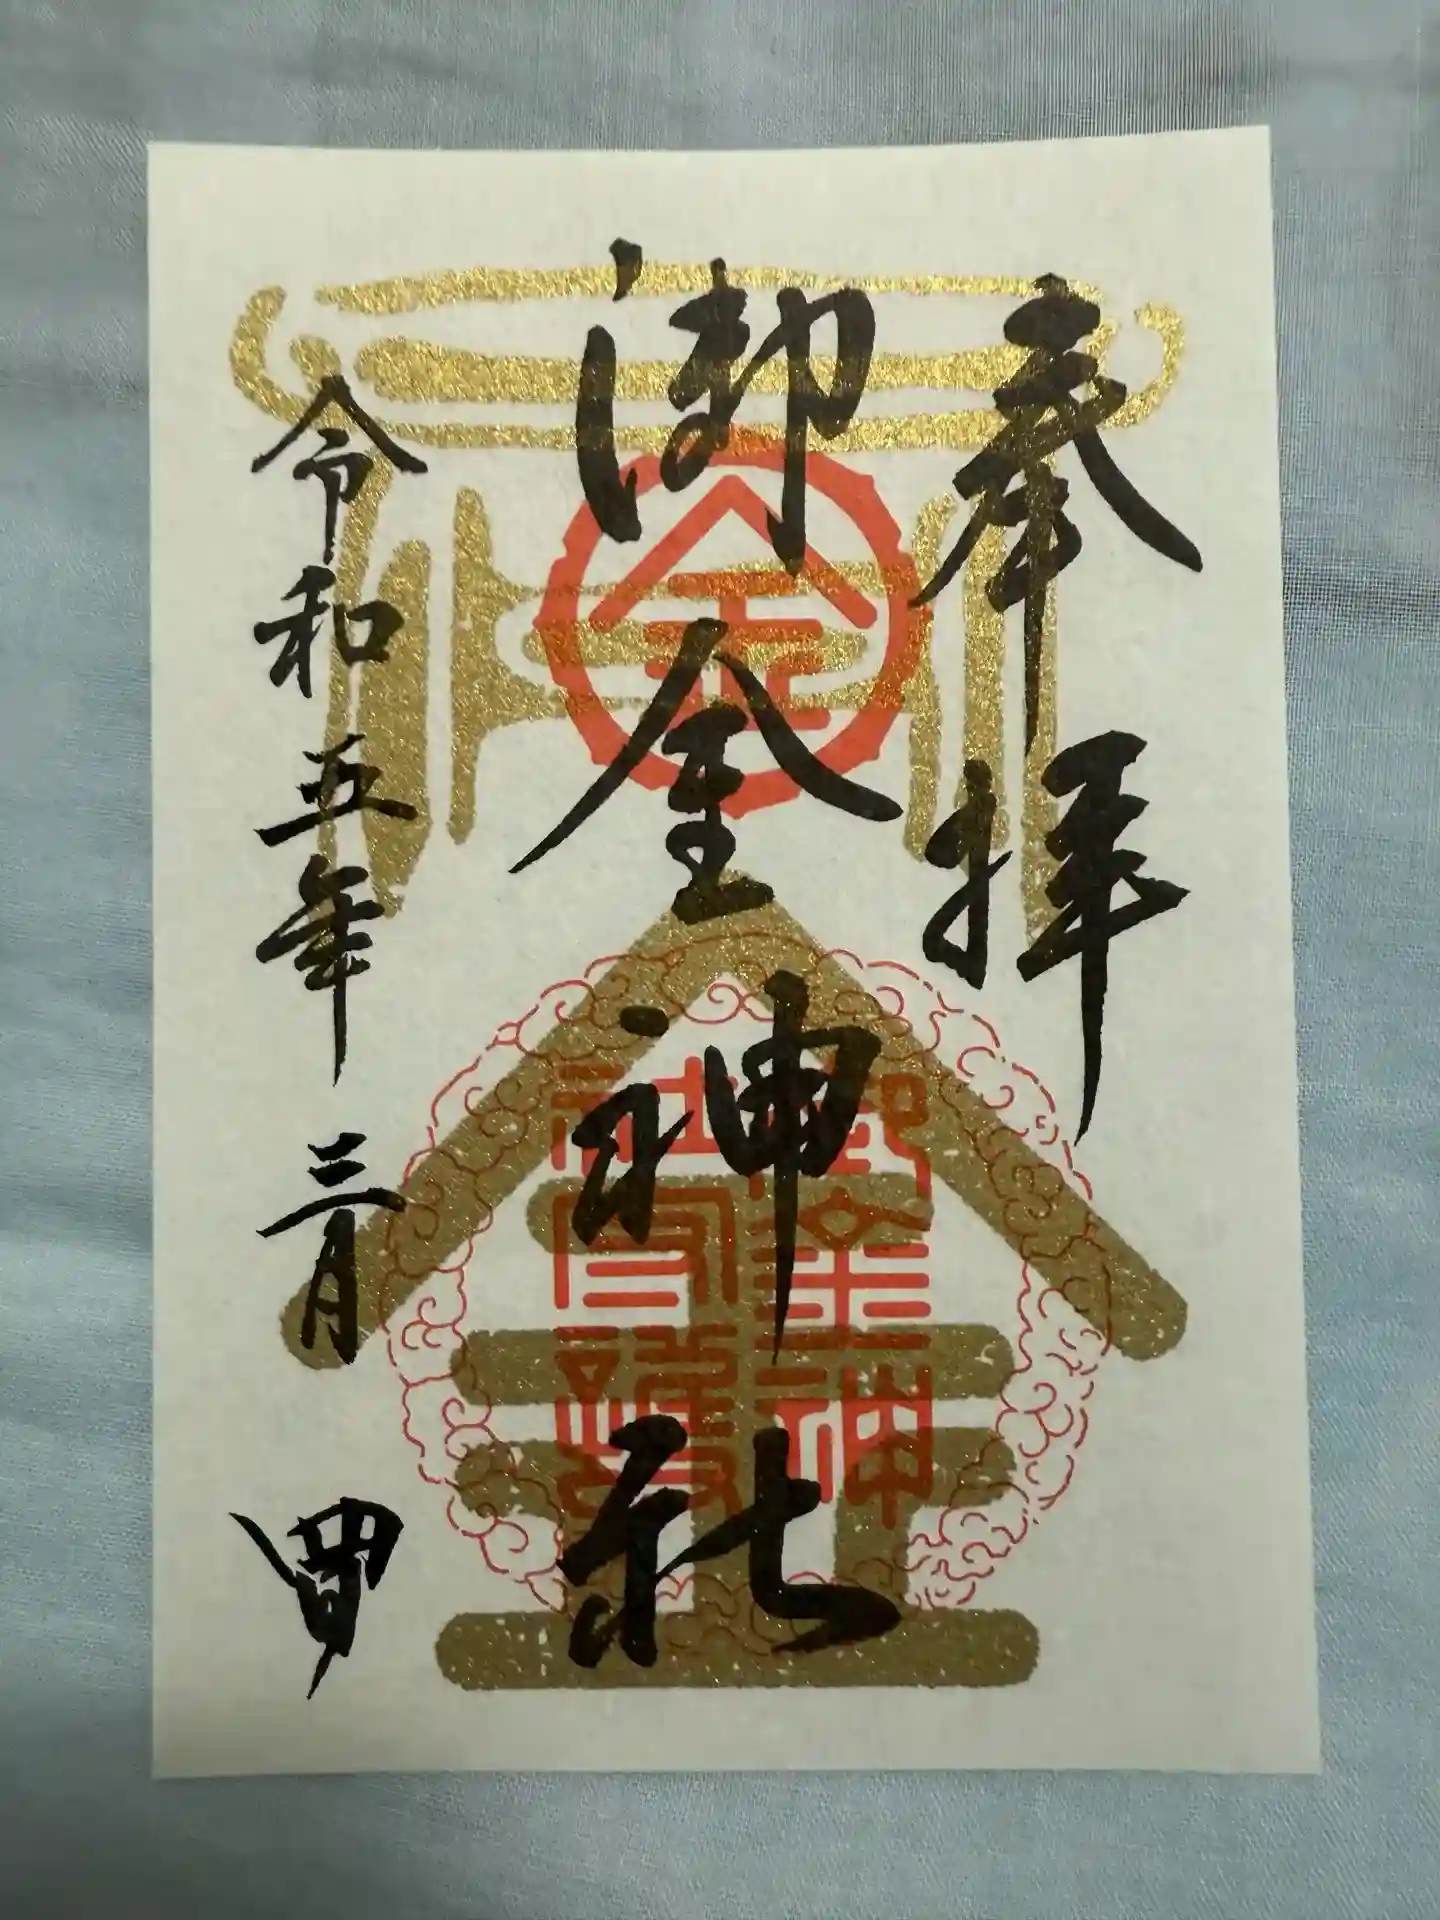 奉拝
御金神社
令和五年三月
金
御金神社
金